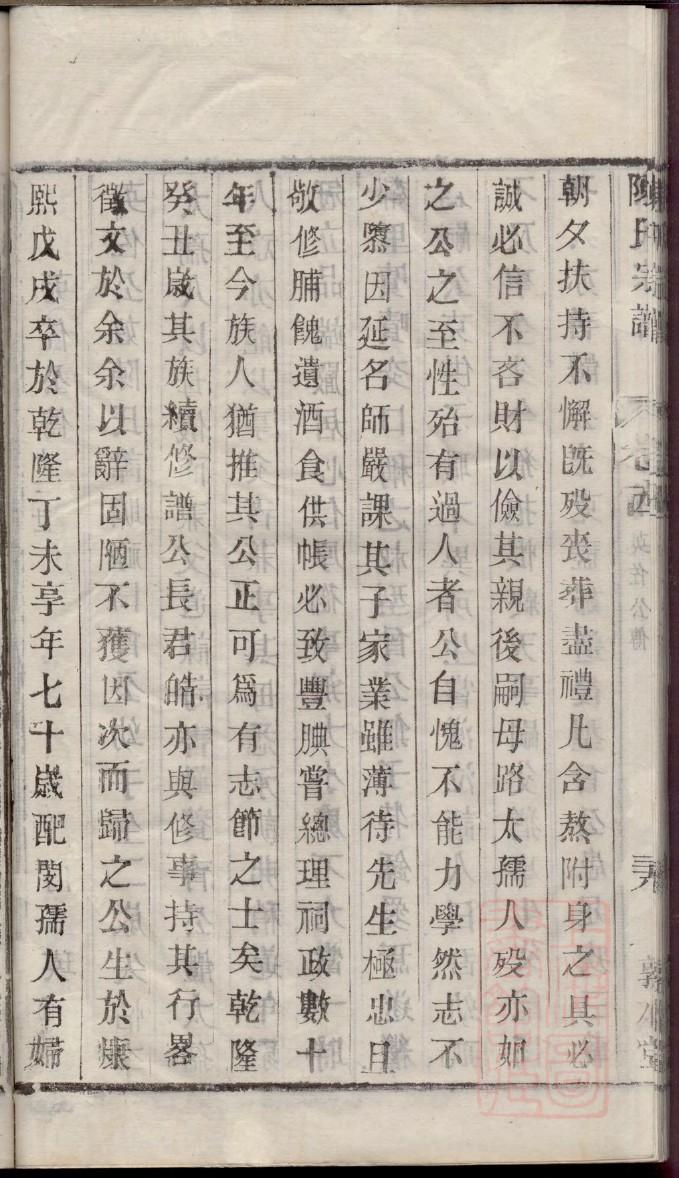 陳氏宗譜 卷 英佐公傳
朝夕扶持不懈旣歿喪葬盡禮凡含熬附身之具必
誠必信不吝財以儉其親後嗣母路太孺人歿亦如
之公之至性殆有過人者公自愧不能力學然志不
少隳因延名師嚴課其子家業雖薄待先生極忠且
敬修脯餽遺酒食供帳必致豐腆嘗總理祠政數十
年至今族人猶推其公正可爲有志節之士矣乾隆
癸丑歲其族續修譜公長君皓亦與修事持其行畧
徵文於余余以辭固陋不獲因次而歸之公生於康
熙戊戌卒於乾隆丁未享年七十歲配閔孺人有婦